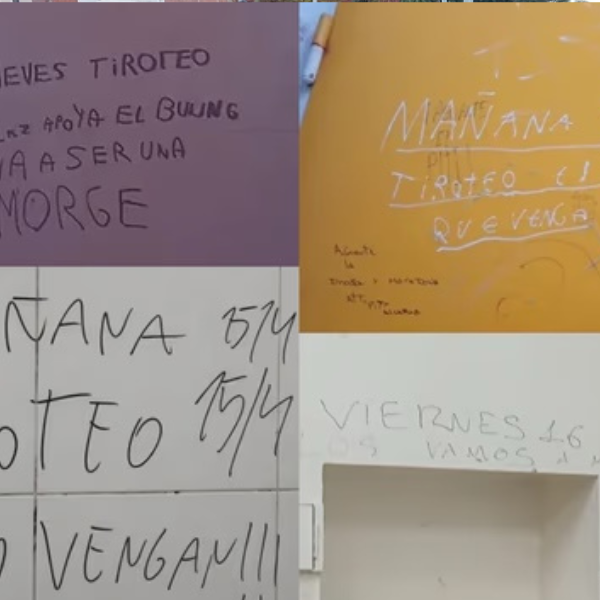 EVES TIROTEO
APOYA EL BULING
VA A SER UNA
MORGE
MAÑANA
TIROTEO EL
QUE VENGA
Aguante
la
ÑANA 15/4
OTEO 15/4
VENGAN!!!
VIERNES 16
LOS VAMOS A M